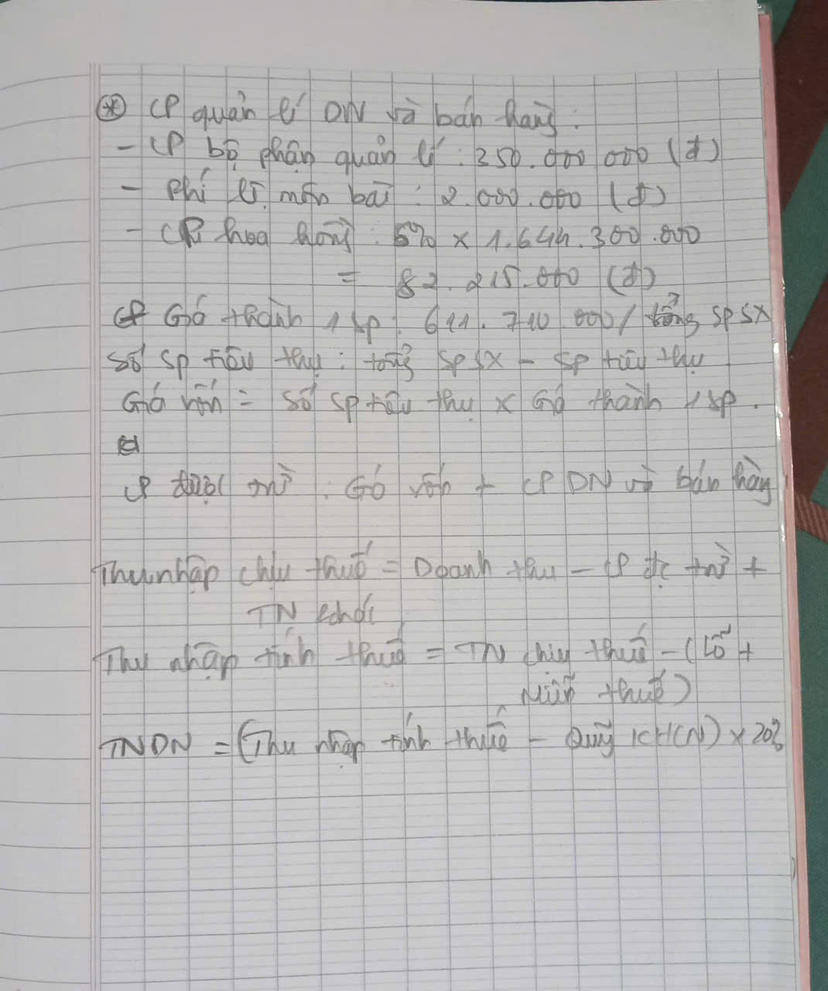 ⊛ CP quản lí DN và bán hàng:
- CP bộ phận quản lí: 250.000 000 (đ)
- phí lệ môn bài: 2.000.000 (đ)
- CP hoa hồng: 5% x 1.644.300.000
= 82.215.000 (đ)
Giá thành 1 sp: 611.710.000 / tổng SPSX
Số sp tiêu thụ: tổng SPSX - SP tiêu thụ
Giá vốn = số sp tiêu thụ x Giá thành 1 sp.
CP được trừ: Giá vốn + CP DN và bán hàng
Thu nhập chịu thuế = Doanh thu - CP đc trừ +
TN khác
Thu nhập tính thuế = TN chịu thuế - (Lỗ +
Miễn thuế)
TNDN = (Thu nhập tính thuế - Quỹ KHCN) x 20%